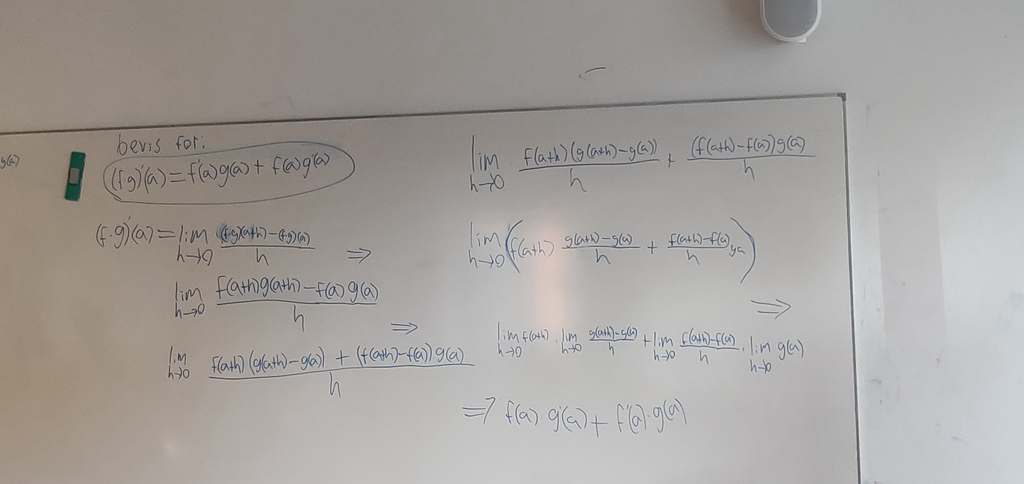 g(a)
bevis for:
(f·g)'(a) = f'(a)g(a) + f(a)g'(a)
(f·g)'(a) = lim h→0 (f·g)(a+h) - (f·g)(a) / h ⇒
lim h→0 f(a+h)g(a+h) - f(a)g(a) / h ⇒
lim h→0 f(a+h)(g(a+h) - g(a)) + (f(a+h) - f(a))g(a) / h
lim h→0 f(a+h)(g(a+h) - g(a)) / h + (f(a+h) - f(a))g(a) / h
lim h→0 (f(a+h) g(a+h) - g(a) / h + f(a+h) - f(a) / h ga) ⇒
lim h→0 f(a+h) · lim h→0 g(a+h) - g(a) / h + lim h→0 f(a+h) - f(a) / h · lim h→0 g(a)
⇒ f(a) g'(a) + f'(a)·g(a)